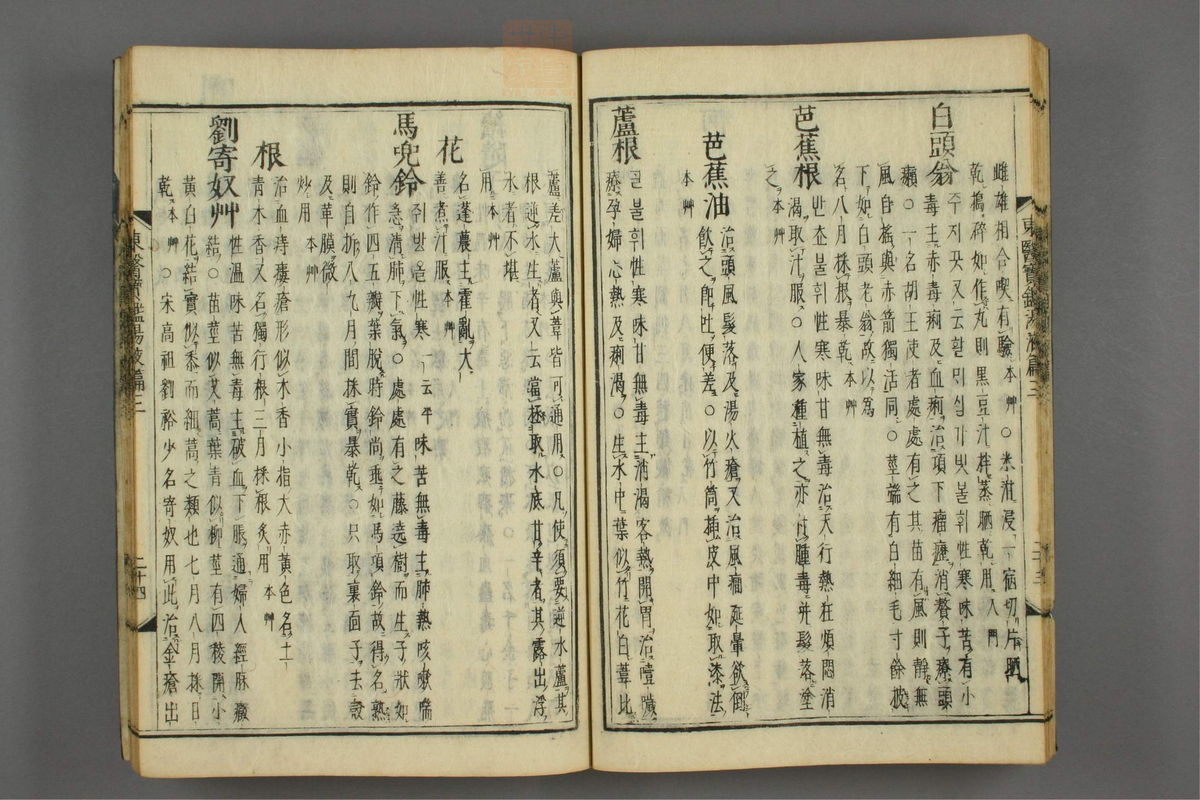 雌雄相合喫有驗本艸○米泔浸一宿切片晒
乾搗碎如作丸則黑豆汁拌蒸晒乾用入門
白頭翁
주지곳又云할미십가빗불휘性寒味苦有小
毒主赤毒痢及血痢治項下瘤癧消贅子療頭
癩○一名胡王使者處處有之其苗有風則靜無
風自搖與赤箭獨活同○莖端有白細毛寸餘披
下如白頭老翁故以爲
名八月採根暴乾本艸
芭蕉根
반쵸불휘性寒味甘無毒治天行熱狂煩悶消
渴取汁服○人家種植之亦付腫毒幷髮落塗
之本艸
芭蕉油
治頭風髮落及湯火瘡又治風癎涎暈欲倒
飮之卽吐便差○以竹筒揷皮中如取漆法
本艸
蘆根
불휘性寒味甘無毒主消渴客熱開胃治噎噦
療孕婦心熱及痢渴○生水中葉似竹花白葦比
蘆差大蘆與葦皆可通用○凡使須要逆水蘆其
根逆水生者又云當極取水底甘辛者其露出浮
水者不堪
用本艸
花
名蓬蕽主霍亂大
善煮汁服本艸
馬兜鈴
性寒一云平味苦無毒主肺熱咳嗽喘
急淸肺下氣○處處有之藤遶樹而生子狀如
鈴作四五瓣葉脫時鈴尙垂如馬項鈴故得名熟
則自折八九月間採實暴乾○只取裏面子去殼
及革膜微
炒用本艸
根
治血痔瘻瘡形似木香小指大赤黃色名土
靑木香又名獨行根三月採根炙用本艸
劉寄奴艸
性溫味苦無毒主破血下脹通婦人經脉癥
結○苗莖似艾蒿葉靑似柳莖有四稜開小
黃白花結實似黍而細蒿之類也七月八月採日
乾本艸○宋高祖劉裕少名寄奴用此治金瘡出
東醫寶鑑湯液篇三
二十四